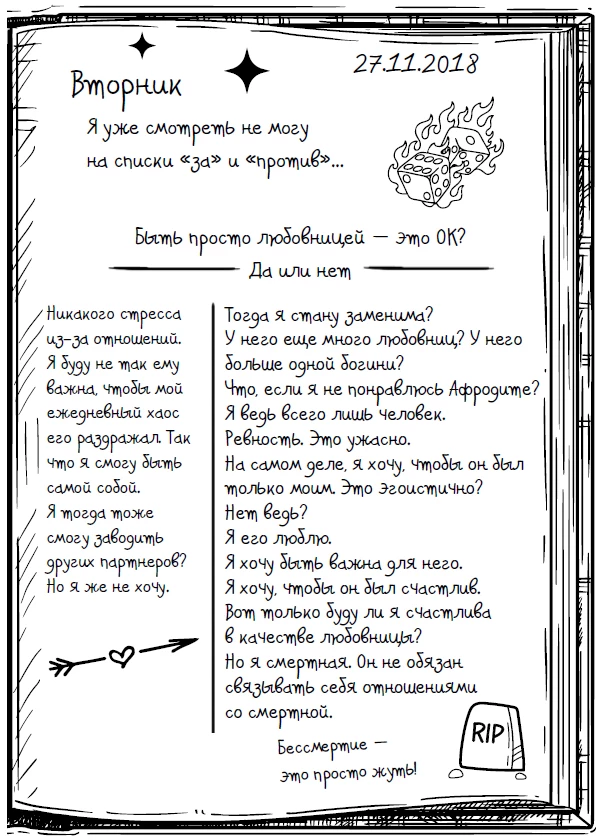 27.11.2018
Вторник
Я уже смотреть не могу
на списки «за» и «против»...
Быть просто любовницей — это ОК?
Да или нет
Никакого стресса
из-за отношений.
Я буду не так ему
важна, чтобы мой
ежедневный хаос
его раздражал. Так
что я смогу быть
самой собой.
Я тогда тоже
смогу заводить
других партнеров?
Но я же не хочу.
Тогда я стану заменима?
У него еще много любовниц? У него
больше одной богини?
Что, если я не понравлюсь Афродите?
Я ведь всего лишь человек.
Ревность. Это ужасно.
На самом деле, я хочу, чтобы он был
только моим. Это эгоистично?
Нет ведь?
Я его люблю.
Я хочу быть важна для него.
Я хочу, чтобы он был счастлив.
Вот только буду ли я счастлива
в качестве любовницы?
Но я смертная. Он не обязан
связывать себя отношениями
со смертной.
RIP
Бессмертие —
это просто жуть!